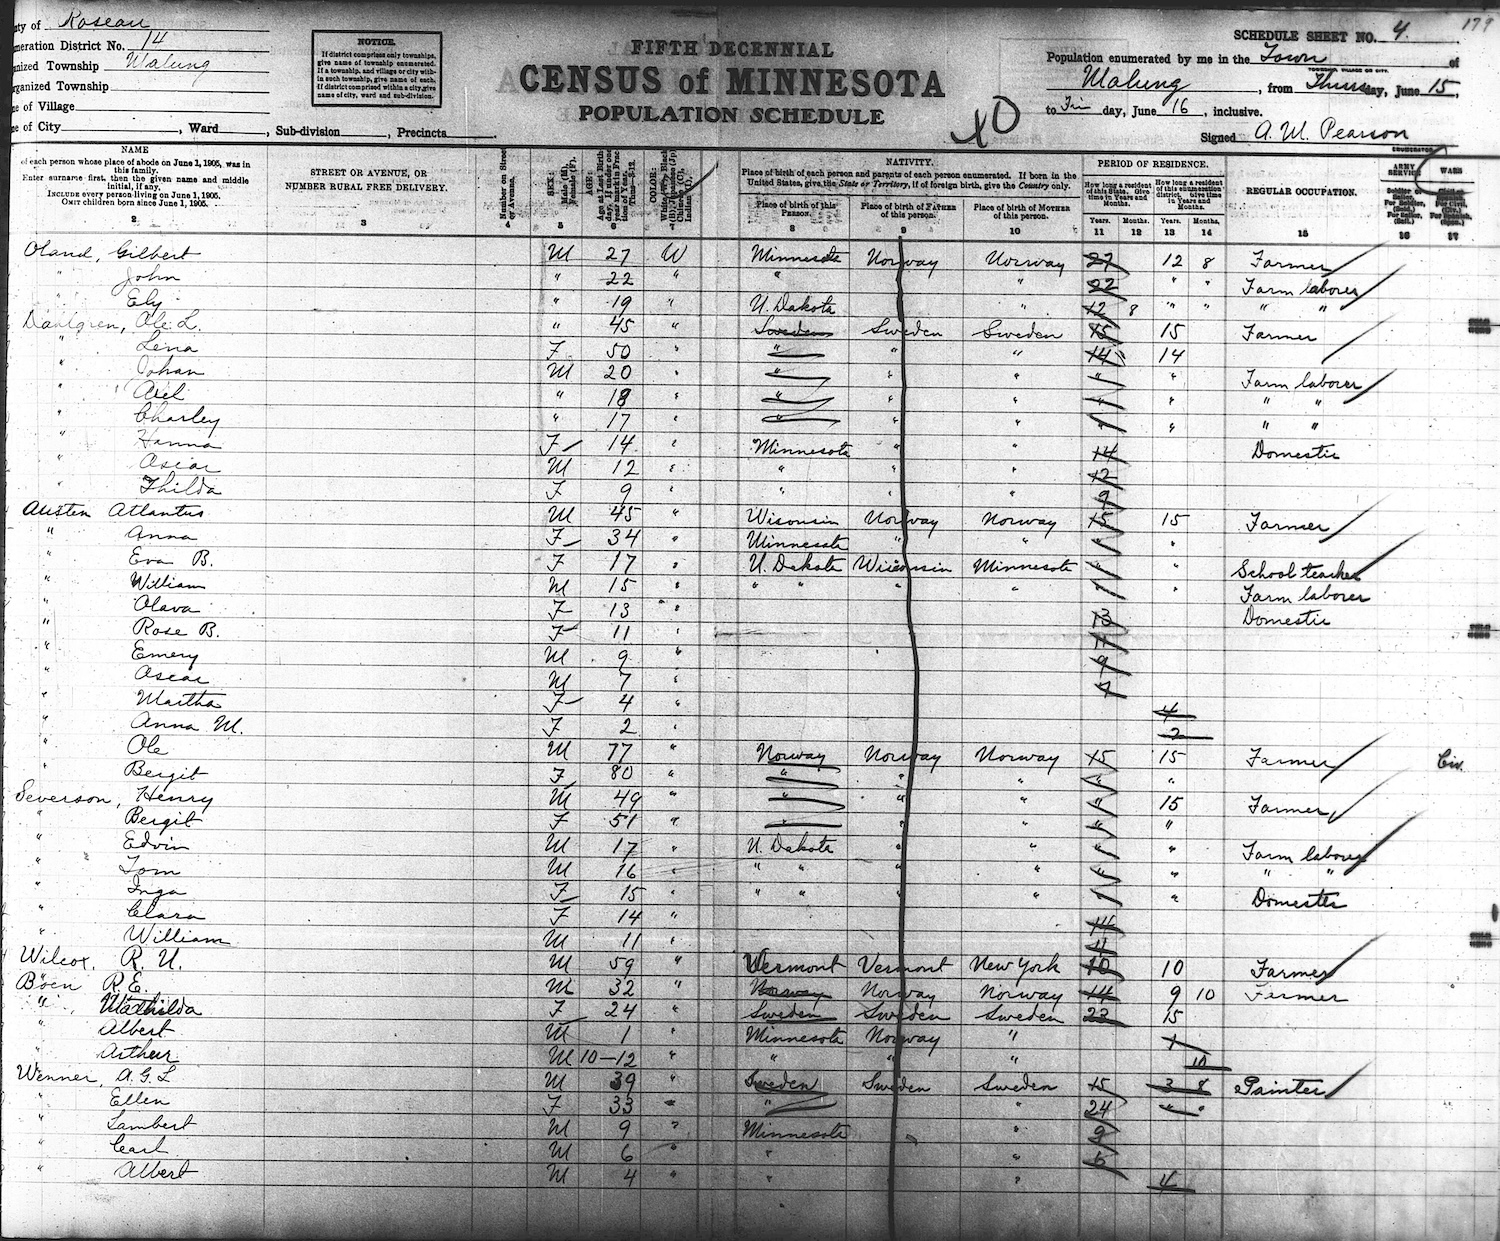 nty of Roseau
meration District No. 14
nized Township Malung
rganized Township
e of Village
e of City , Ward , Sub-division , Precincts
NOTICE.
If district comprises only townships, give name of township enumerated. If a township, and village or city within such township, give name of each. If district comprised within a city, give name of city, ward and sub-division.
FIFTH DECENNIAL
CENSUS of MINNESOTA
POPULATION SCHEDULE
XO
179
SCHEDULE SHEET NO. 4.
Population enumerated by me in the Town of
TOWNSHIP, VILLAGE OR CITY.
Malung, from Thursday, June 15,
to Fri day, June 16, inclusive.
Signed A. M. Pearson
ENUMERATOR.
NAME
of each person whose place of abode on June 1, 1905, was in this family.
Enter surname first, then the given name and middle initial, if any.
INCLUDE every person living on June 1, 1905.
OMIT children born since June 1, 1905.
STREET OR AVENUE, OR NUMBER RURAL FREE DELIVERY.
Number on Street or Avenue.
SEX: Male (M), Female (F).
AGE: Age at Last Birthday.
COLOR:
NATIVITY.
Place of birth of each person and parents of each person enumerated. If born in the United States, give the State or Territory, if of foreign birth, give the Country only.
Place of birth of this PERSON. Place of birth of FATHER of this person. Place of birth of MOTHER of this person.
PERIOD OF RESIDENCE.
How long a resident of this State. Give time in Years and Months. How long a resident of this enumeration district. Give time in Years and Months.
Years. Months. Years. Months.
REGULAR OCCUPATION.
ARMY SERVICE WARS
2 3 4 5 6 7 8 9 10 11 12 13 14 15 16 17
Oland, Gilbert M 27 W Minnesota Norway Norway 27 12 8 Farmer
" John " 22 " " " 22 " " Farm laborer
" Ely " 19 " N. Dakota " 12 8 " " " "
Dahlgren, Ole L. " 45 " Sweden Sweden Sweden 15 15 Farmer
" Lena F 50 " " " " 14 14
" Johan M 20 " " " " " " Farm laborer
" Axel " 18 " " " " " " " "
" Charley " 17 " " " " " " " "
" Hanna F 14 " Minnesota " " 14 Domestic
" Oscar M 12 " " " " 12
" Thilda F 9 " " " " 9
Austen Atlantus M 45 " Wisconsin Norway Norway 15 15 Farmer
" Anna F 34 " Minnesota " " " "
" Eva B. F 17 " N. Dakota Wisconsin Minnesota " " School teacher
" William M 15 " " " " " " " Farm laborer
" Olava F 13 " 13 Domestic
" Rose B. F 11 " 11
" Emery M 9 " 9
" Oscar M 7 " 7
" Martha F 4 " 4
" Anna M. F 2 " 2
" Ole M 77 " Norway Norway Norway 15 15 Farmer Civ.
" Bergit F 80 " " " " " "
Severson, Henry M 49 " " " " " 15 Farmer
" Bergit F 51 " " " " " "
" Edvin M 17 " N. Dakota " " " " Farm laborer
" Tom M 16 " " " " " " " " "
" Inga F 15 " " " " " " " Domestic
" Clara F 14 " 14
" William M 11 " 11
Wilcox, R. U. M 59 " Vermont Vermont New York 10 10 Farmer
Böen R.E. M 32 " Norway Norway Norway 14 9 10 Farmer
" Mathilda F 24 " Sweden Sweden Sweden 23 15
" Albert M 1 " Minnesota Norway " 1
" Arthur M 10-12 " " " " 10
Wenner, A.G.L M 39 " Sweden Sweden Sweden 15 3 8 Painter
" Ellen F 33 " " " 24 " "
" Lambert M 9 " Minnesota " 9
" Carl M 6 " " " 6
" Albert M 4 " " " 4